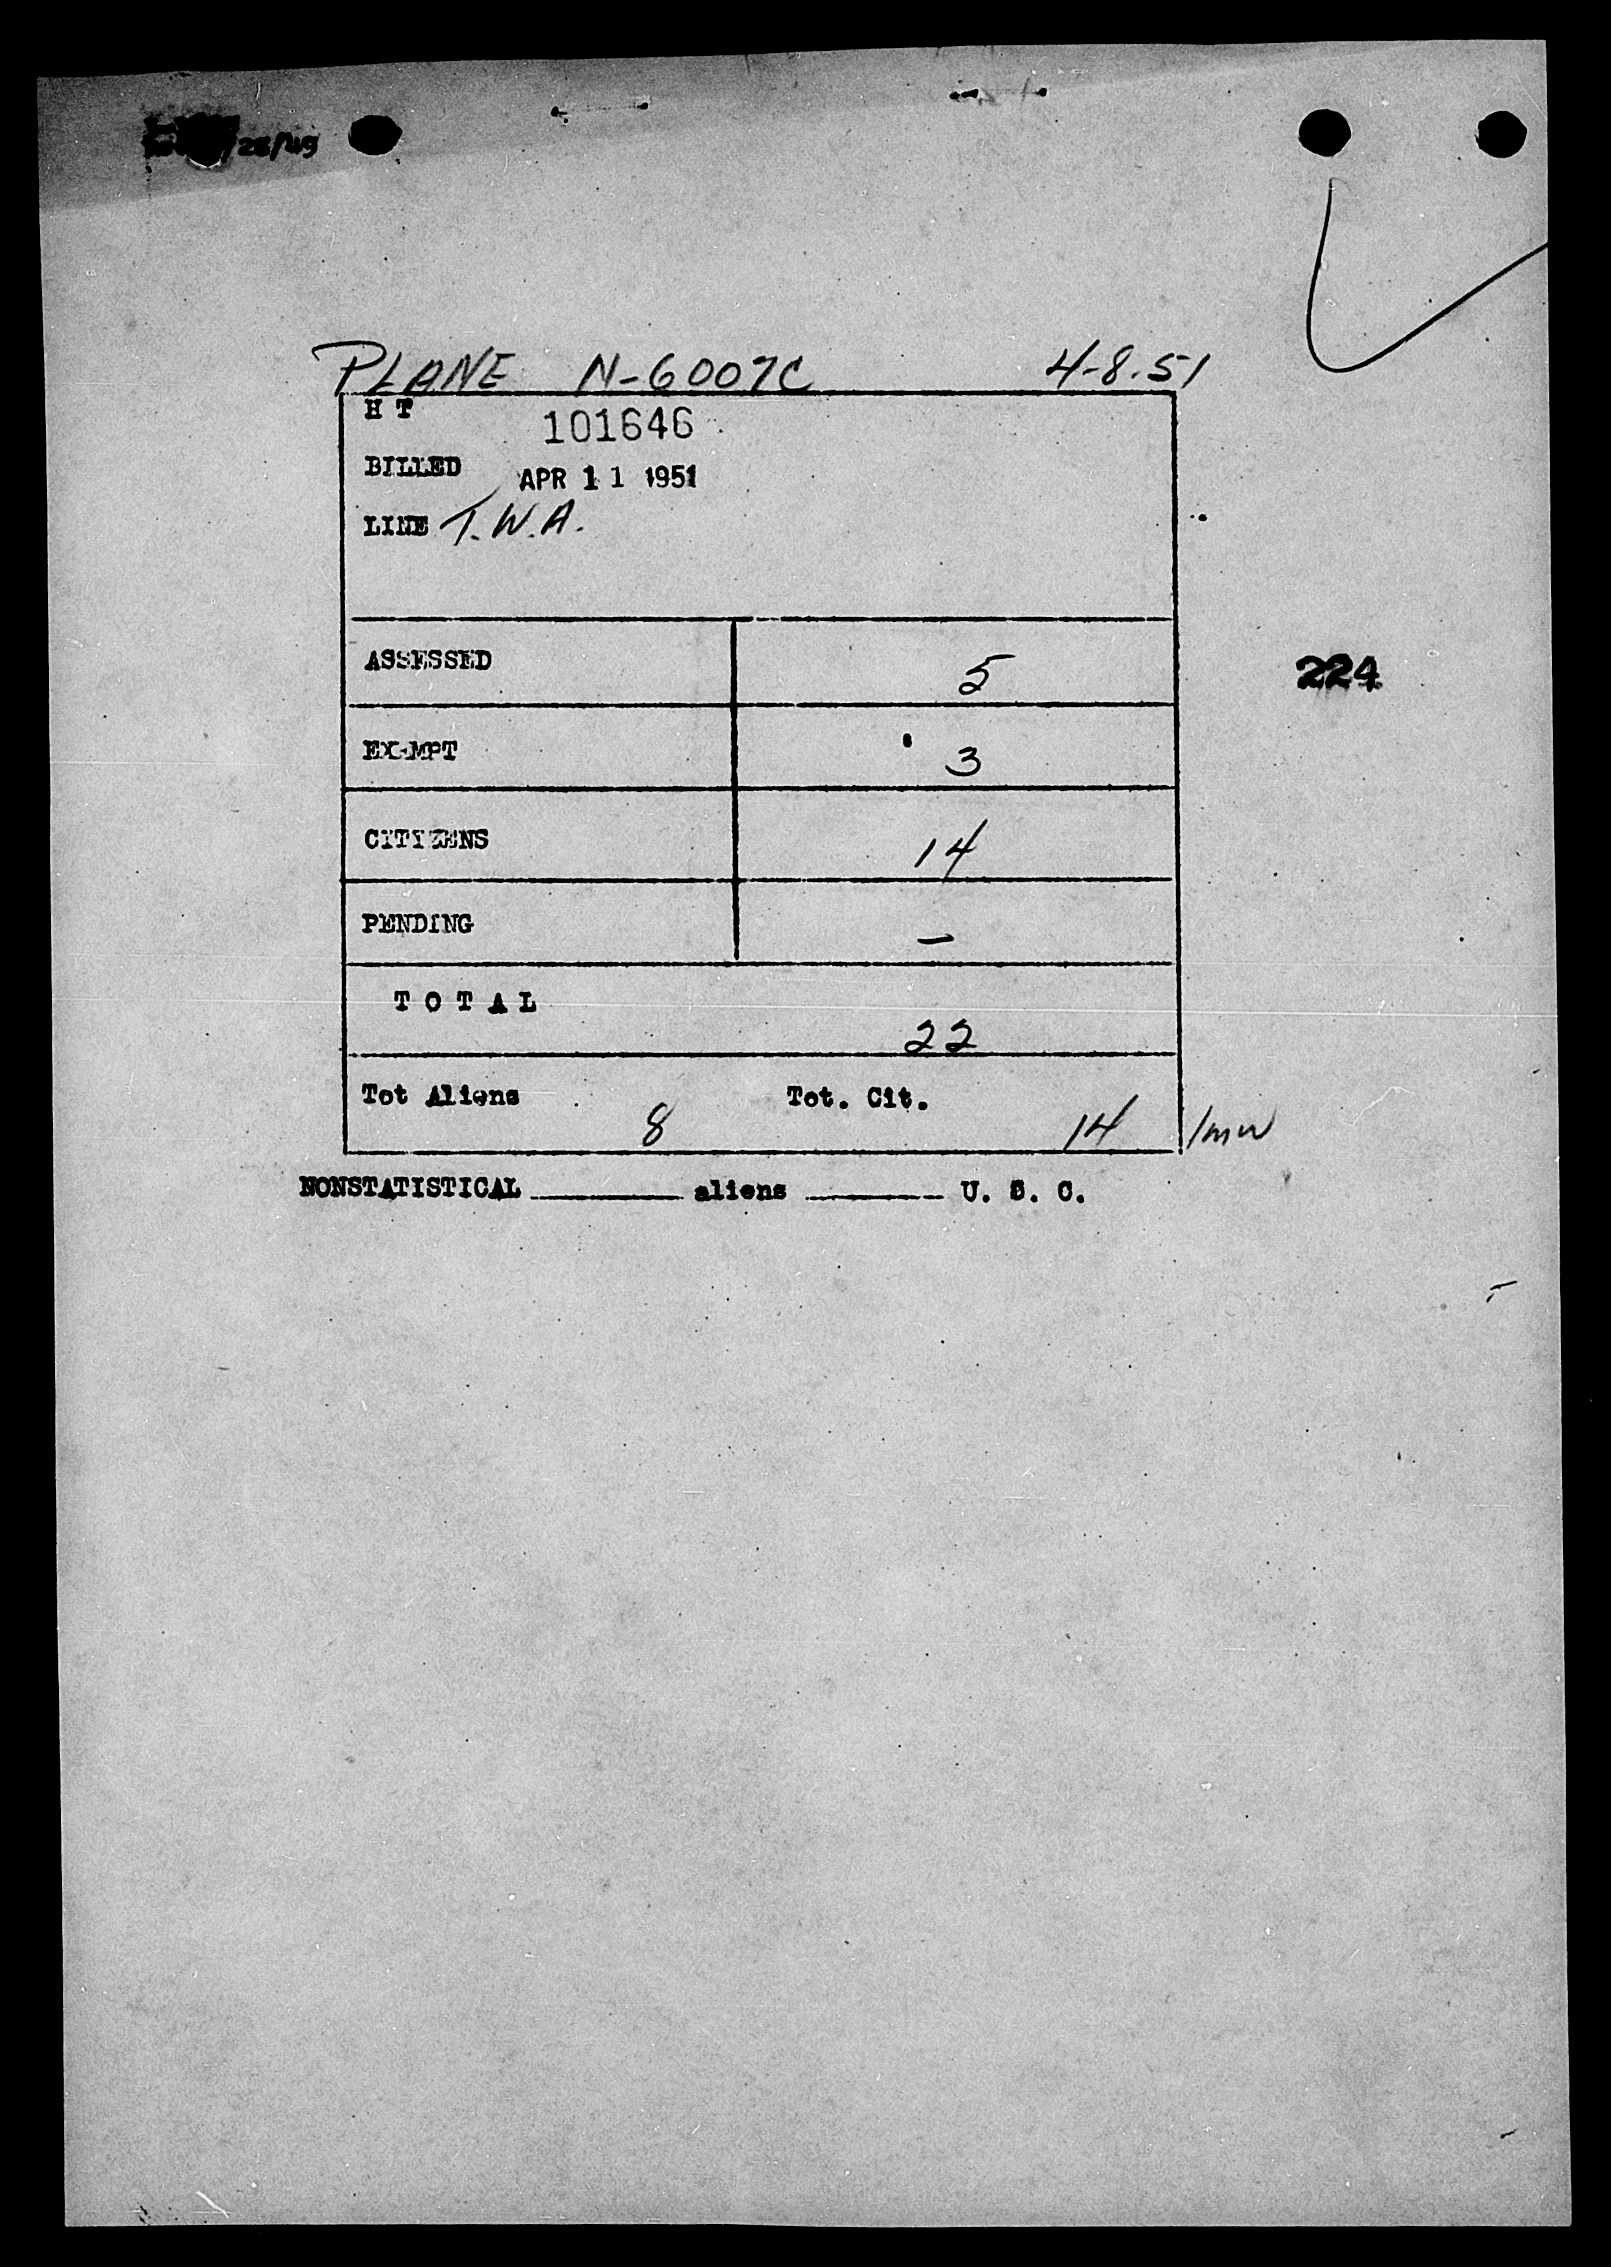 /28/49
PLANE N-6007C 4-8-51
H T 101646
BILLED APR 11 1951
LINE T.W.A.
ASSESSED 5
224
EXEMPT 3
CITIZENS 14
PENDING -
TOTAL 22
Tot Aliens 8 Tot. Cit. 14 /mw
NONSTATISTICAL ________ aliens ________ U. S. C.